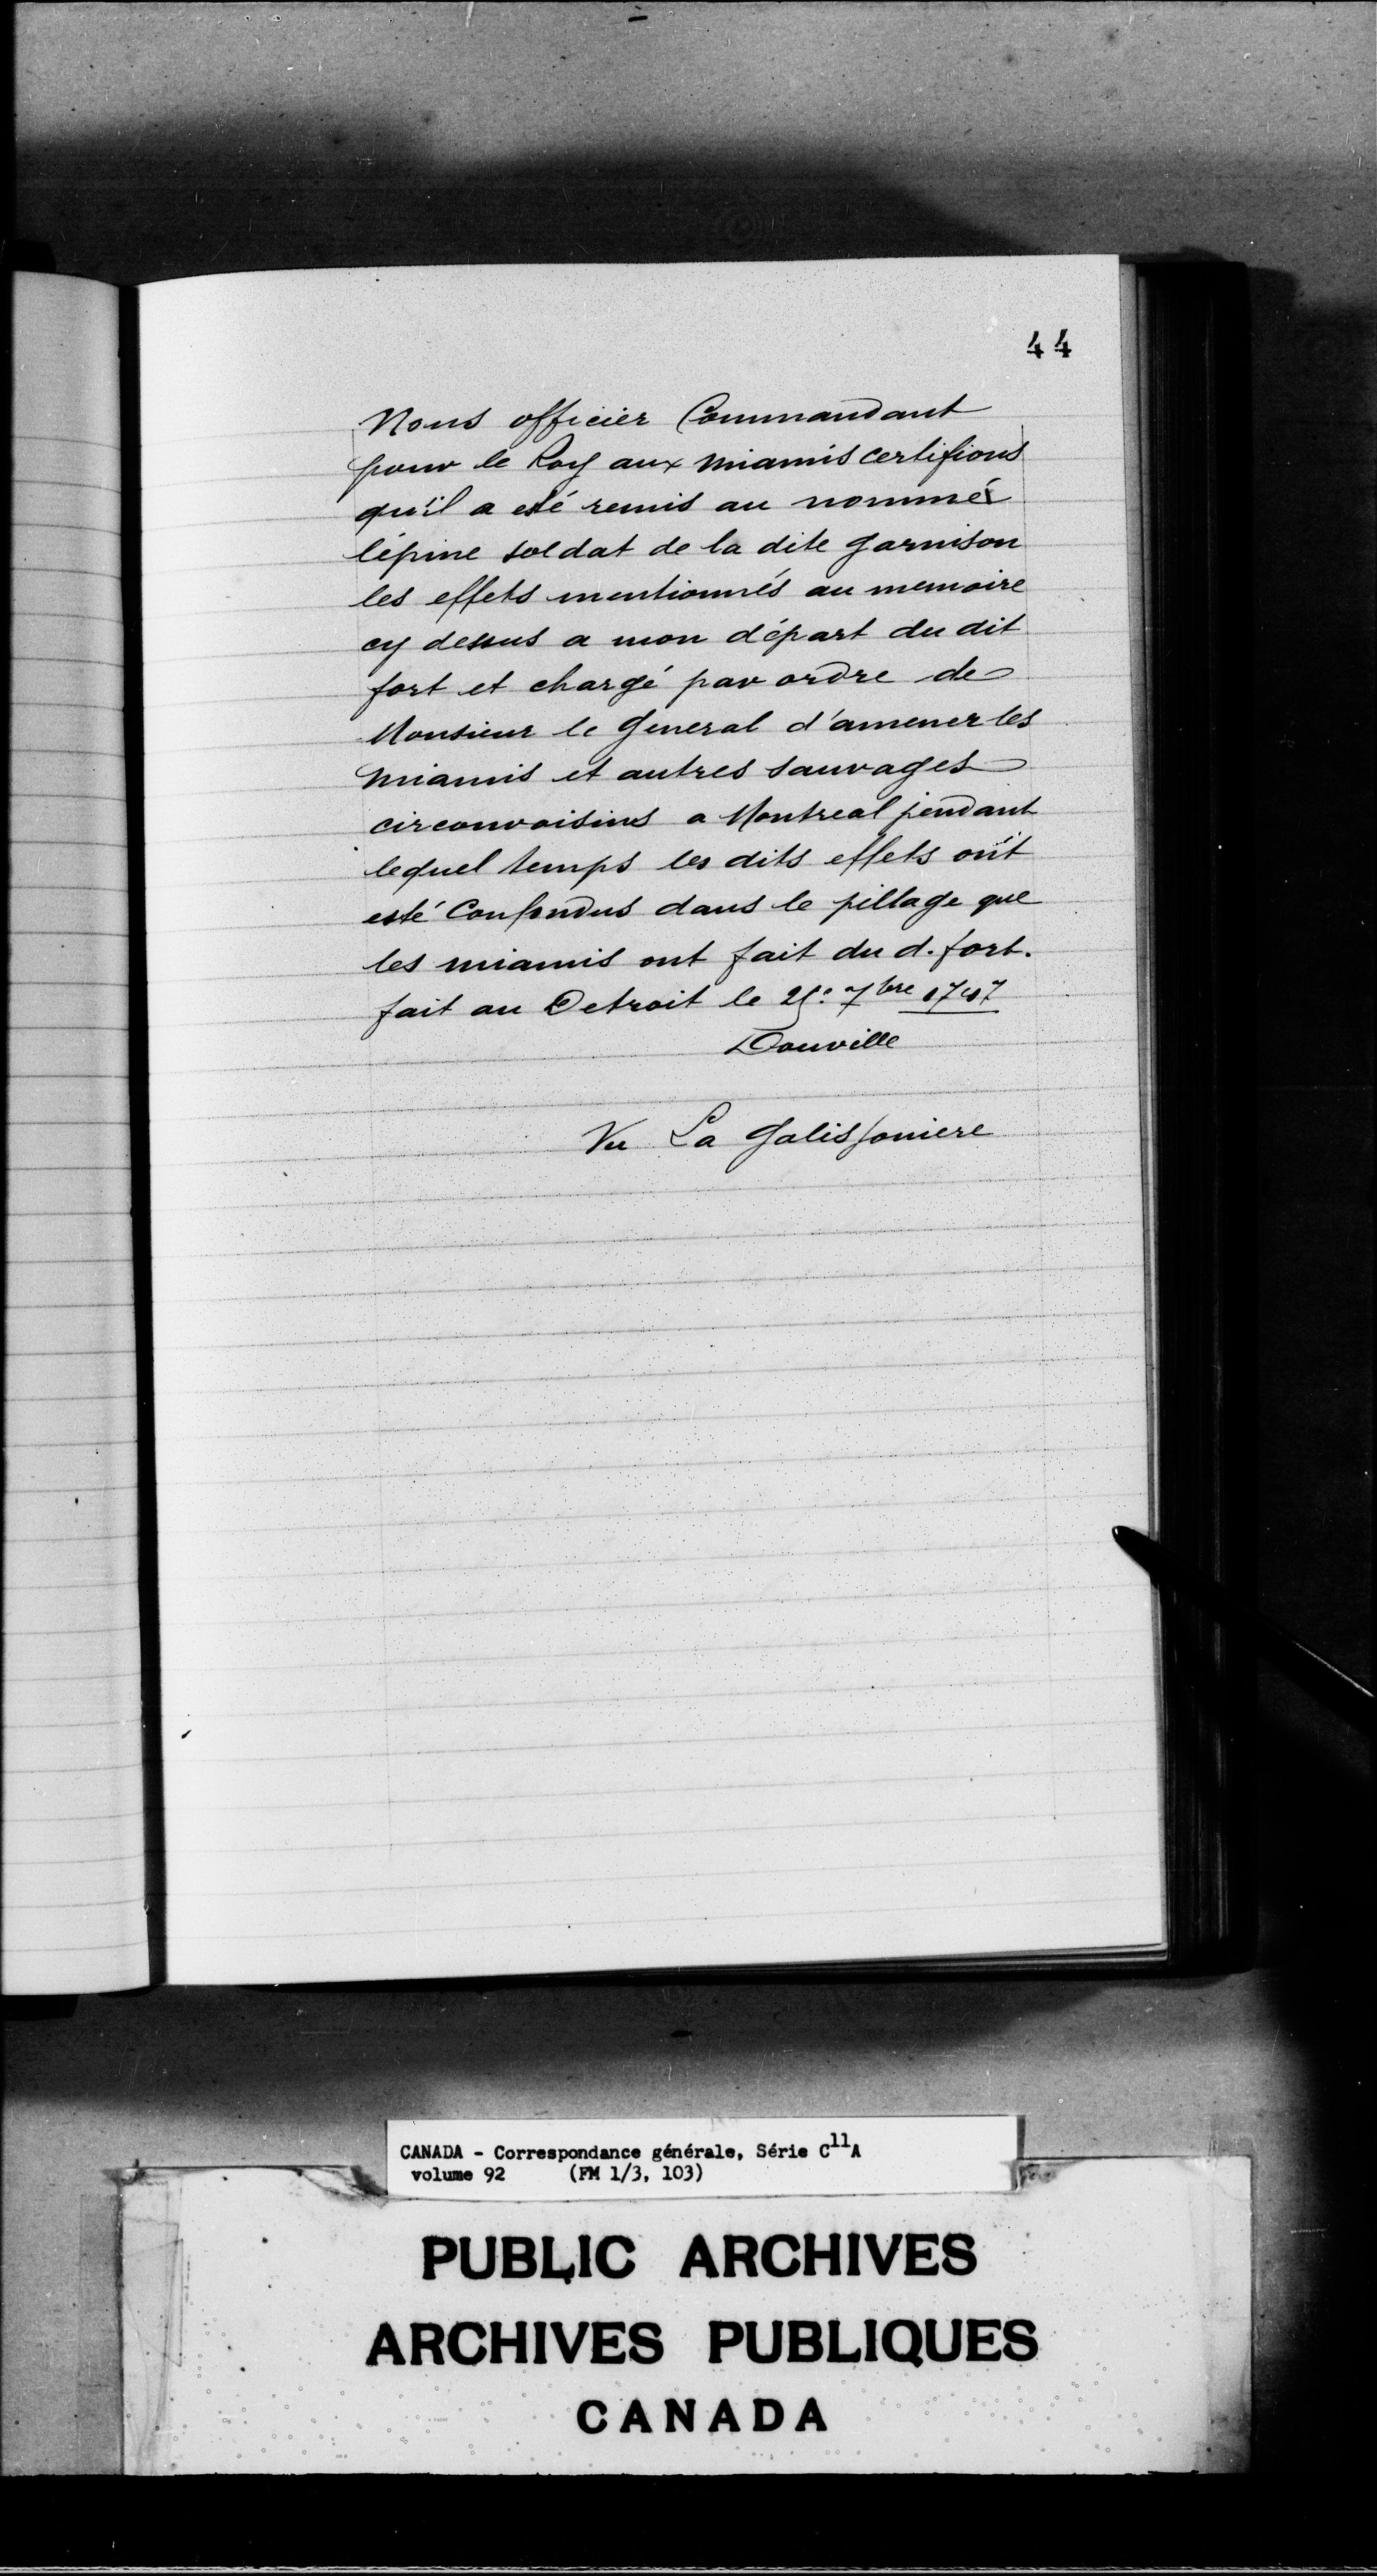 44
Nous officier Commandant
pour le Roy aux miamis certifions
qu'il a esté remis au nommé
lépine soldat de la dite garnison
les effets mentionnés au memoire
cy dessus a mon départ du dit
fort et chargé par ordre de
Monsieur le General d'amener les
miamis et autres sauvages
circonvoisins a Montreal pendant
lequel temps les dits effets ont
esté Confondus dans le pillage que
les miamis ont fait du d. fort.
fait au Detroit le 7bre 1747
Douville
Vu La Galissoniere
CANADA - Correspondance générale, Série C11A
volume 92 (FM 1/3, 103)
PUBLIC ARCHIVES
ARCHIVES PUBLIQUES
CANADA